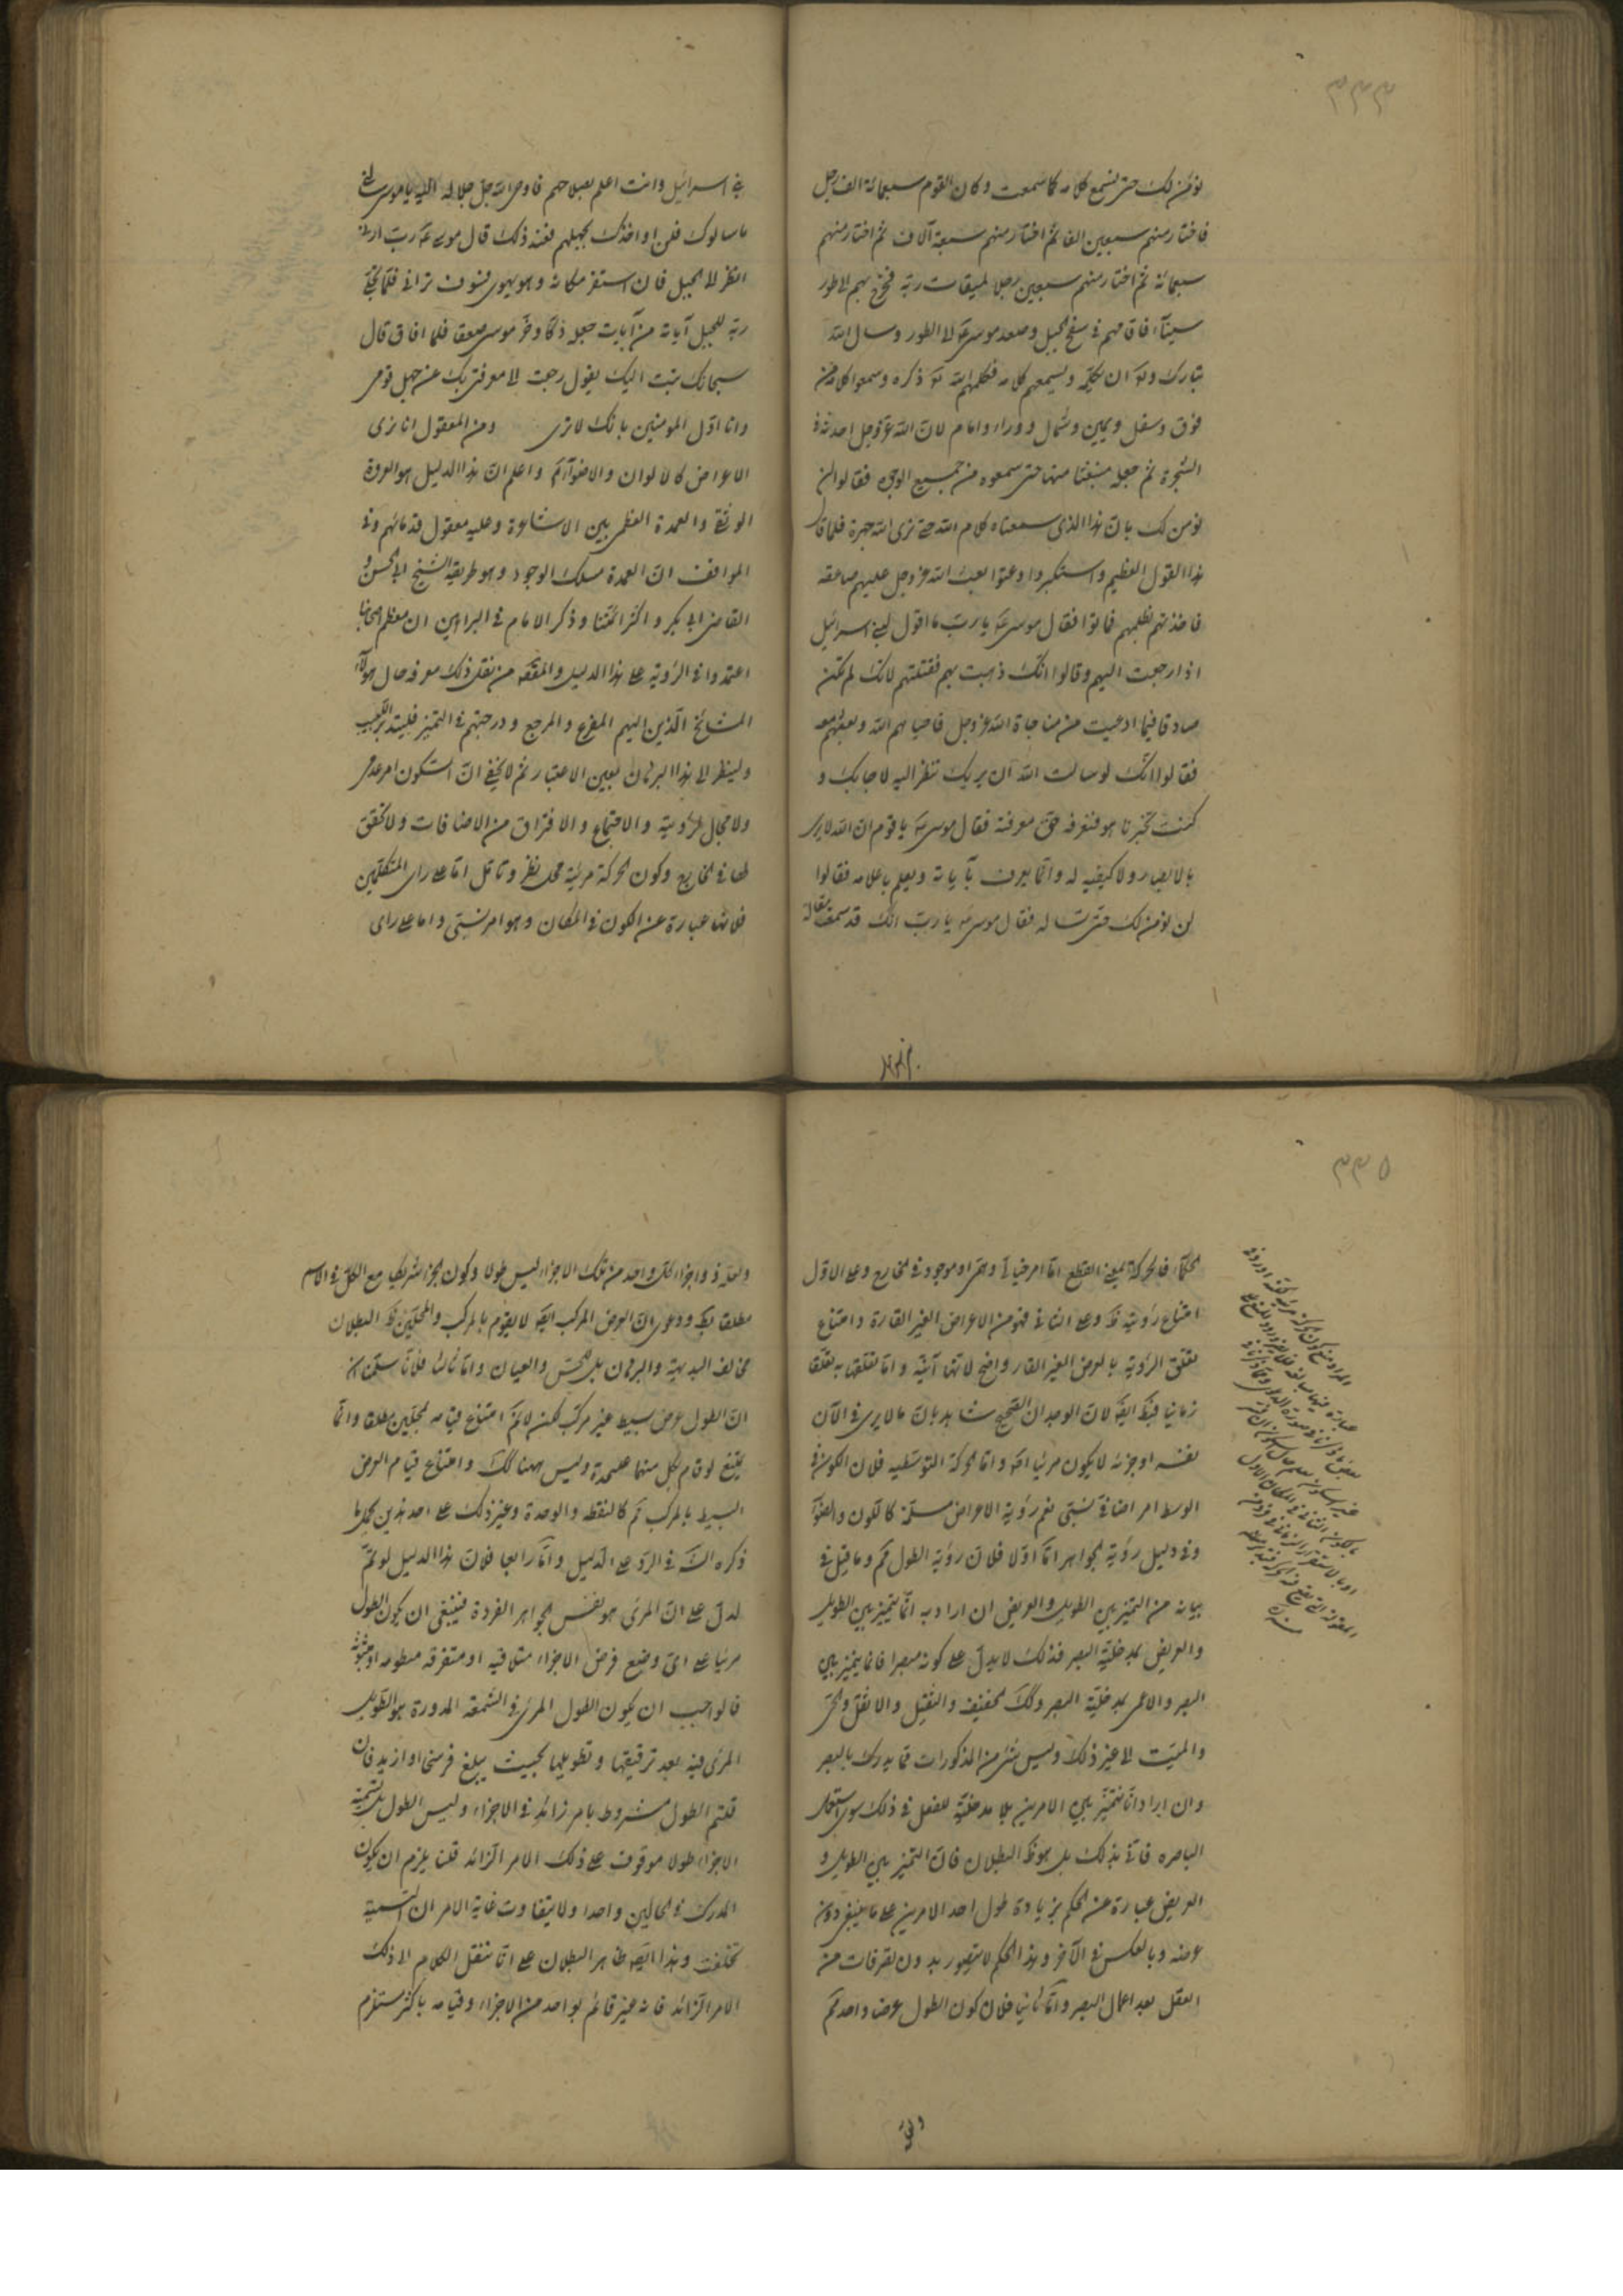 ٣٣٤
نؤمن لك حتى نسمع كلامه كما سمعت وكان القوم سبعمائة الف رجل
فاختار منهم سبعين الفا ثم اختار منهم سبعة آلاف ثم اختار منهم
سبعمائة ثم اختار منهم سبعين رجلا لميقات ربه فخرج بهم الى طور
سيناء فاقامهم في سفح الجبل وصعد موسى ع الى الطور وسال الله
تبارك وتع ان يكلمه ويسمعهم كلامه فكلمهم الله تع ذكره وسمعوا كلامه من
فوق وسفل ويمين وشمال ووراء وامام لان الله عز وجل احدثه في
الشجرة ثم جعله منبعثا منها حتى سمعوه من جميع الوجوه فقالوا لن
نؤمن لك بان هذا الذي سمعناه كلام الله حتى نرى الله جهرة فلما قالوا
هذا القول العظيم واستكبروا وعتوا بعث الله عز وجل عليهم صاعقه
فاخذتهم بظلمهم فماتوا فقال موسى ع يا رب ما اقول لبني اسرائيل
اذا رجعت اليهم وقالوا انك ذهبت بهم فقتلتهم لانك لم تكن
صادقا فيما ادعيت من مناجاة الله عز وجل فاحياهم الله وبعثهم معه
فقالوا انك لو سالت الله ان يريك تنظر اليه لاجابك و
كنت تخبرنا هو فنعرفه حق معرفته فقال موسى ع يا قوم ان الله لا يرى
بالابصار ولا كيفيه له وانما يعرف بآياته ويعلم باعلامه فقالوا
لن نؤمن لك حتى تساله فقال موسى ع يا رب انك قد سمعت مقالة
بني اسرائيل وانت اعلم بصلاحهم فاوحى الله جل جلاله اليه يا موسى سلني
ما سالوك فلن اواخذك بجهلهم فعند ذلك قال موسى ع رب ارني
انظر الى الجبل فان استقر مكانه وهو يهوي فسوف تراني فلما تجلى
ربه للجبل آياته من آيات جعله دكا وخر موسى صعقا فلما افاق قال
سبحانك تبت اليك يقول رجعت الى معرفتي بك عن جهل قومي
وانا اول المومنين بانك لا ترى ومن المعقول انا نرى
الاعراض كالالوان والاضواء آه واعلم ان هذا الدليل هو العروة
الوثقى والعمدة العظمى بين الاشاعرة وعليه معقول قدمائهم وفي
المواقف ان العمدة مسلك الوجود وهو طريقة الشيخ ابي الحسن و
القاضي ابي بكر واكثر ائمتنا وذكر الامام في البراهين ان معظم اصحابنا
اعتمدوا في الرؤية على هذا الدليل والمقصود من نقل ذلك معرفه حال هؤلاء
المشايخ الذين اليهم المفزع والمرجع ودرجتهم في التميز فليتدبر اللبيب
ولينظر الى هذا البرهان بعين الاعتبار ثم لا يخفى ان السكون امر عدمي
ولا مجال لرؤيته والاجتماع والافتراق من الاضافات ولا تحقق
لها في الخارج وكون الحركة مرئية محل نظر وتامل اما على راى المتكلمين
فلانها عبارة عن الكون في المكان وهو امر نسبي واما على راى
٣٣٥
الحكماء فالحركة بمعنى القطع اما امر خيالي وهمي او موجود في الخارج وعلى الاول
امتناع رؤيته ظ وعلى الثاني فهو من الاعراض الغير القارة وامتناع
تعلق الرؤية بالعرض الغير القار واضح لانها آنية واما تعلقها به تعلقا
زمانيا فبط ايضا لان الوجدان الصحيح شاهد بان ما لا يرى في الآن
نفسه او جزئه لا يكون مرئيا اصلا واما الحركة التوسطيه فلان الكون في
الوسط امر اضافي نسبي نعم رؤية الاعراض مسلمة كاللون والضوء
وفي دليل رؤية الجواهر اما اولا فلان رؤية الطول مم وما قيل في
بيانه من التميز بين الطويل والعريض ان اراد به انا نتميز بين الطويل
والعريض بمدخلية البصر فذلك لا يدل على كونه مبصرا فانا نميز بين
البصر والاعمى بمدخلية البصر وكذلك الخفيف والثقيل والاثقل والحي
والميت الى غير ذلك وليس شئ من المذكورات مما يدرك بالبصر
وان اراد انا نتميز بين الامرين بلا مدخلية للعقل في ذلك سوى استعمال
الباصره فاني بذلك بل هو ظ البطلان فان التميز بين الطويل و
العريض عبارة عن الحكم بزيادة طول احد الامرين على ما ينبغي دون
عرضه وبالعكس في الآخر وهذا الحكم لا يتصور بدون تصرفات من
العقل بعد اعمال البصر واما ثانيا فلان كون الطول عرضا واحدا مم
ولعله ذو اجزاء لكل واحد من تلك الاجزاء ليس طولا وكون الجزء شريكا مع الكل في الاسم
مطلقا بط ودعوى ان العرض المركب ايضا لا يقوم بالمركب والمحلين ظ البطلان
مخالف البديهة والبرهان بل الحس والعيان واما ثالثا فلانا سلمنا
ان الطول عرض بسيط غير مركب لكن لا نم امتناع قيامه بمحلين مطلقا وانما
يمتنع لو قام بكل منهما عليحدة وليس ههنا كك وامتناع قيام العرض
البسيط بالمركب مم كالنقطه والوحدة وغير ذلك على احد هذين كل ما
ذكره الش في الرد على الدليل واما رابعا فلان هذا الدليل لو تم
لدل على ان المرئي هو نفس الجواهر الفردة فينبغي ان يكون الطول
مرئيا على اي وضع فرض الاجزاء متلاقيه او متفرقه منظومه او مبثوثه
فالواجب ان يكون الطول المرئي في الشمعة المدورة هو الطويل
المرئي فيه بعد ترقيقها وتطويلها بحيث يبلغ فرسخا او ازيد فان
قلتم الطول مشروط بامر زائد في الاجزاء وليس الطول بل تسمية
الاجزاء طولا موقوف على ذلك الامر الزائد قلنا يلزم ان يكون
المدرك في الحالين واحدا ولا يتفاوت غاية الامر ان التسمية
تختلف وهذا ايضا ظاهر البطلان على انا ننقل الكلام الى ذلك
الامر الزائد فانه غير قائم بواحد من الاجزاء وقيامه باكثر مستلزم